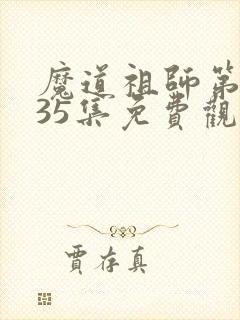 魔道祖師第
35集免費觀
賈存真